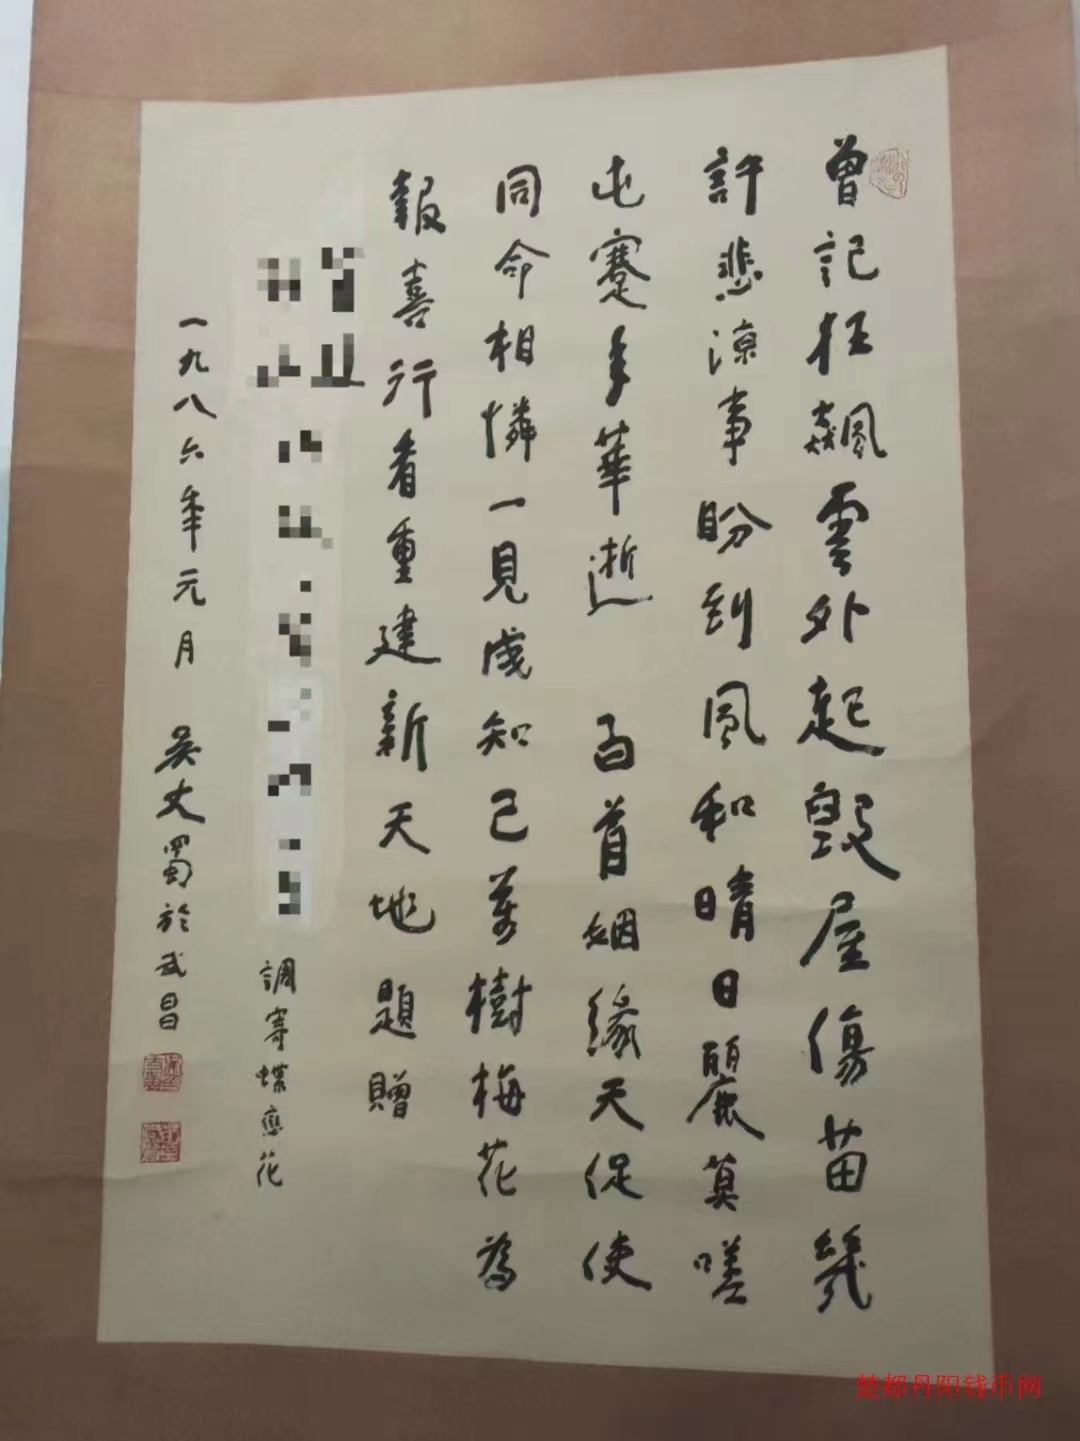 曾記狂飆雲外起毀屋傷苗幾
許悲涼事盼到風和晴日麗莫嗟
屯蹇年華逝 百首姻緣天促使
同命相憐一見成知己萬樹梅花為
報喜行看重建新天地題贈
調寄蝶戀花
一九八六年元月 吳丈蜀於武昌
楚都丹阳钱币网